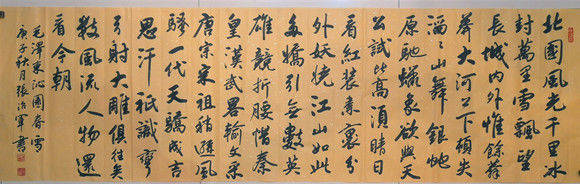 北國風光千里冰
封萬里雪飄望
長城內外惟餘莽
莽大河上下頓失
滔〻山舞銀蛇
原馳蠟象欲與天
公試比高須晴日
看紅裝素裹分
外妖嬈江山如此
多嬌引無數英
雄競折腰惜秦
皇漢武畧輸文采
唐宗宋祖稍遜風
騷一代天驕成吉
思汗祇識彎
弓射大雕俱往矣
數風流人物還
看今朝
毛澤東沁園春雪
庚子秋月張治軍書